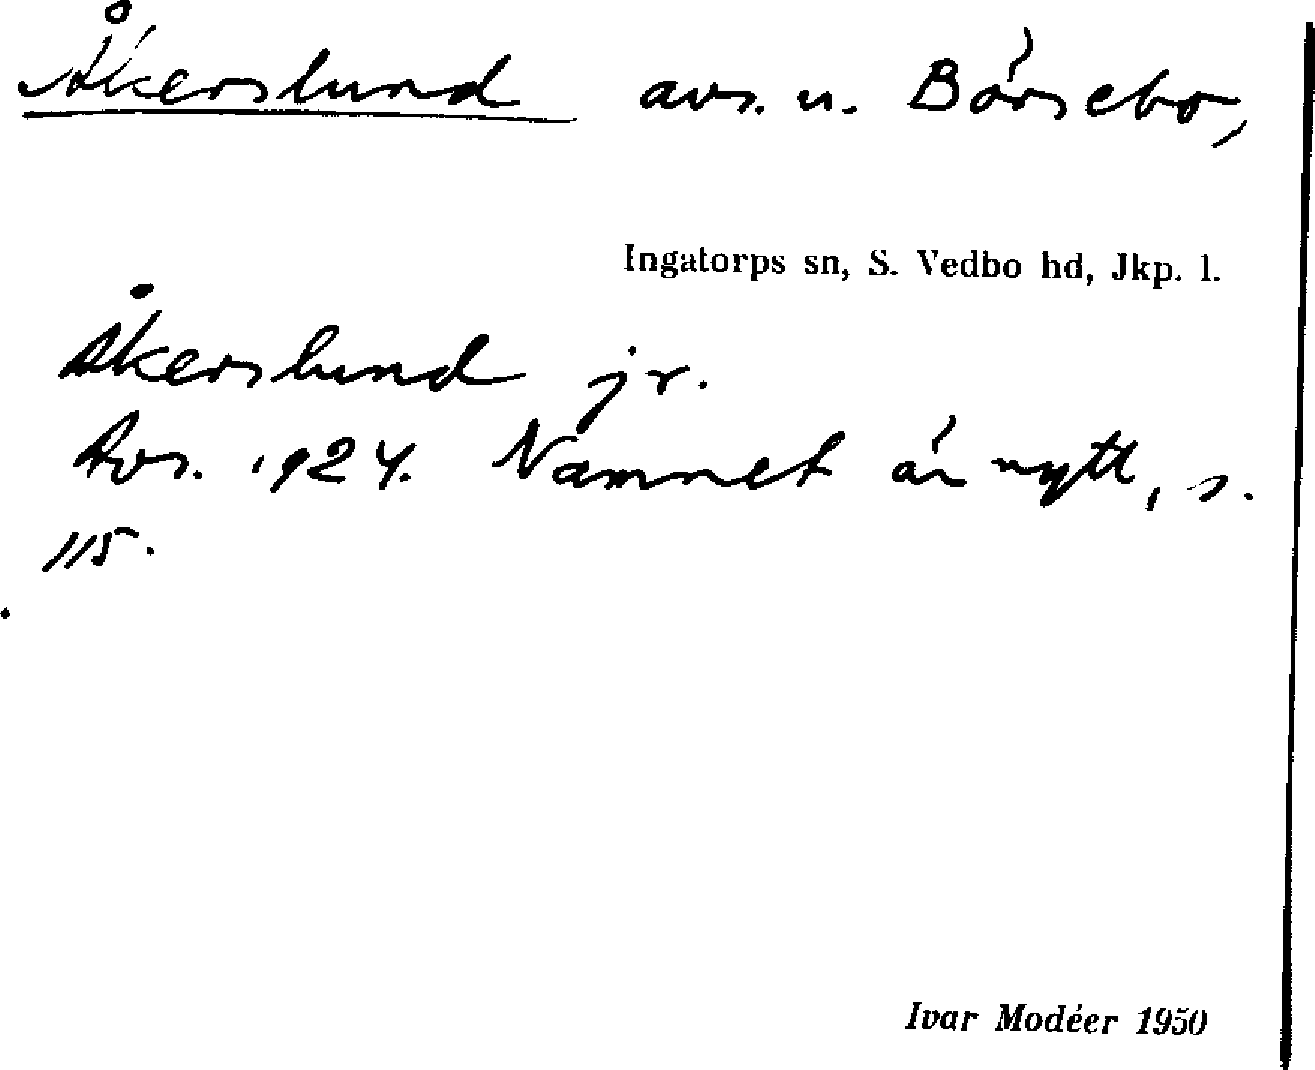 Åkerslund avs. u. Börsebo,
Ingatorps sn, S. Vedbo hd, Jkp. l.
Åkerslund jr.
Avs. 1924. Namnet är nytt, s.
115.
Ivar Modéer 1950